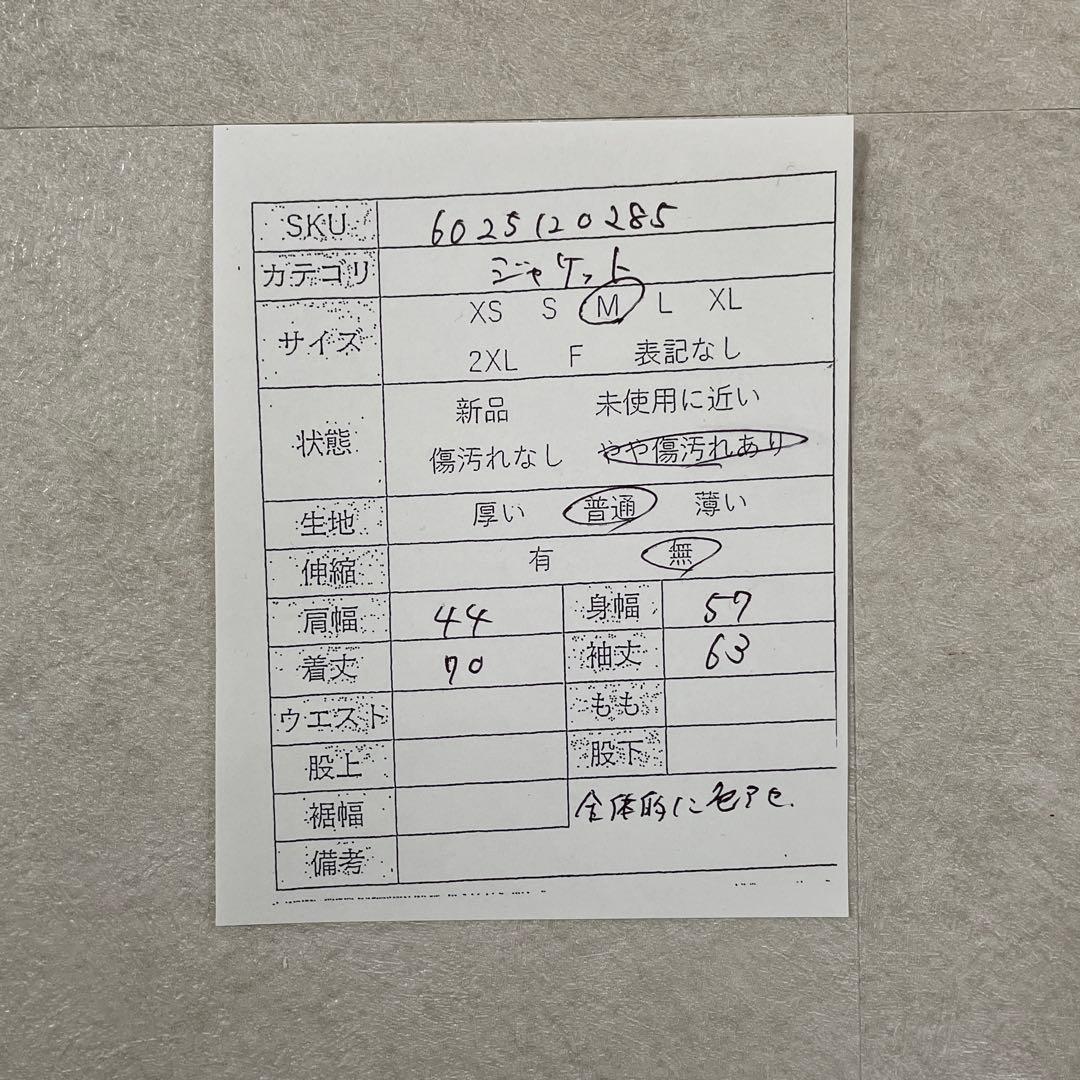 SKU 6025120285
カテゴリ ジャケット
サイズ XS S M L XL
2XL F 表記なし
状態 新品 未使用に近い
傷汚れなし やや傷汚れあり
生地 厚い 普通 薄い
伸縮 有 無
肩幅 44 身幅 57
着丈 70 袖丈 63
ウエスト もも
股上 股下
裾幅 全体的に色アセ.
備考